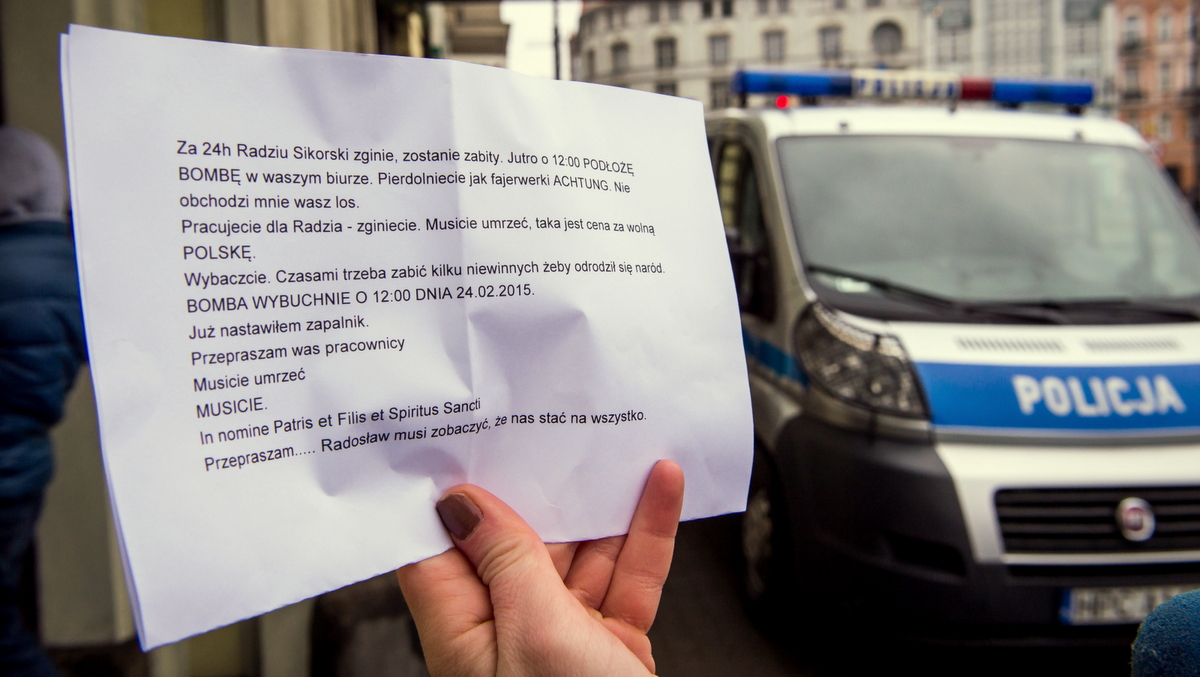 Za 24h Radziu Sikorski zginie, zostanie zabity. Jutro o 12:00 PODŁOŻĘ
BOMBĘ w waszym biurze. Pierdolniecie jak fajerwerki ACHTUNG. Nie
obchodzi mnie wasz los.
Pracujecie dla Radzia - zginiecie. Musicie umrzeć, taka jest cena za wolną
POLSKĘ.
Wybaczcie. Czasami trzeba zabić kilku niewinnych żeby odrodził się naród.
BOMBA WYBUCHNIE O 12:00 DNIA 24.02.2015.
Już nastawiłem zapalnik.
Przepraszam was pracownicy
Musicie umrzeć
MUSICIE.
In nomine Patris et Filis et Spiritus Sancti
Przepraszam..... Radosław musi zobaczyć, że nas stać na wszystko.
POLICJA
POLICJA